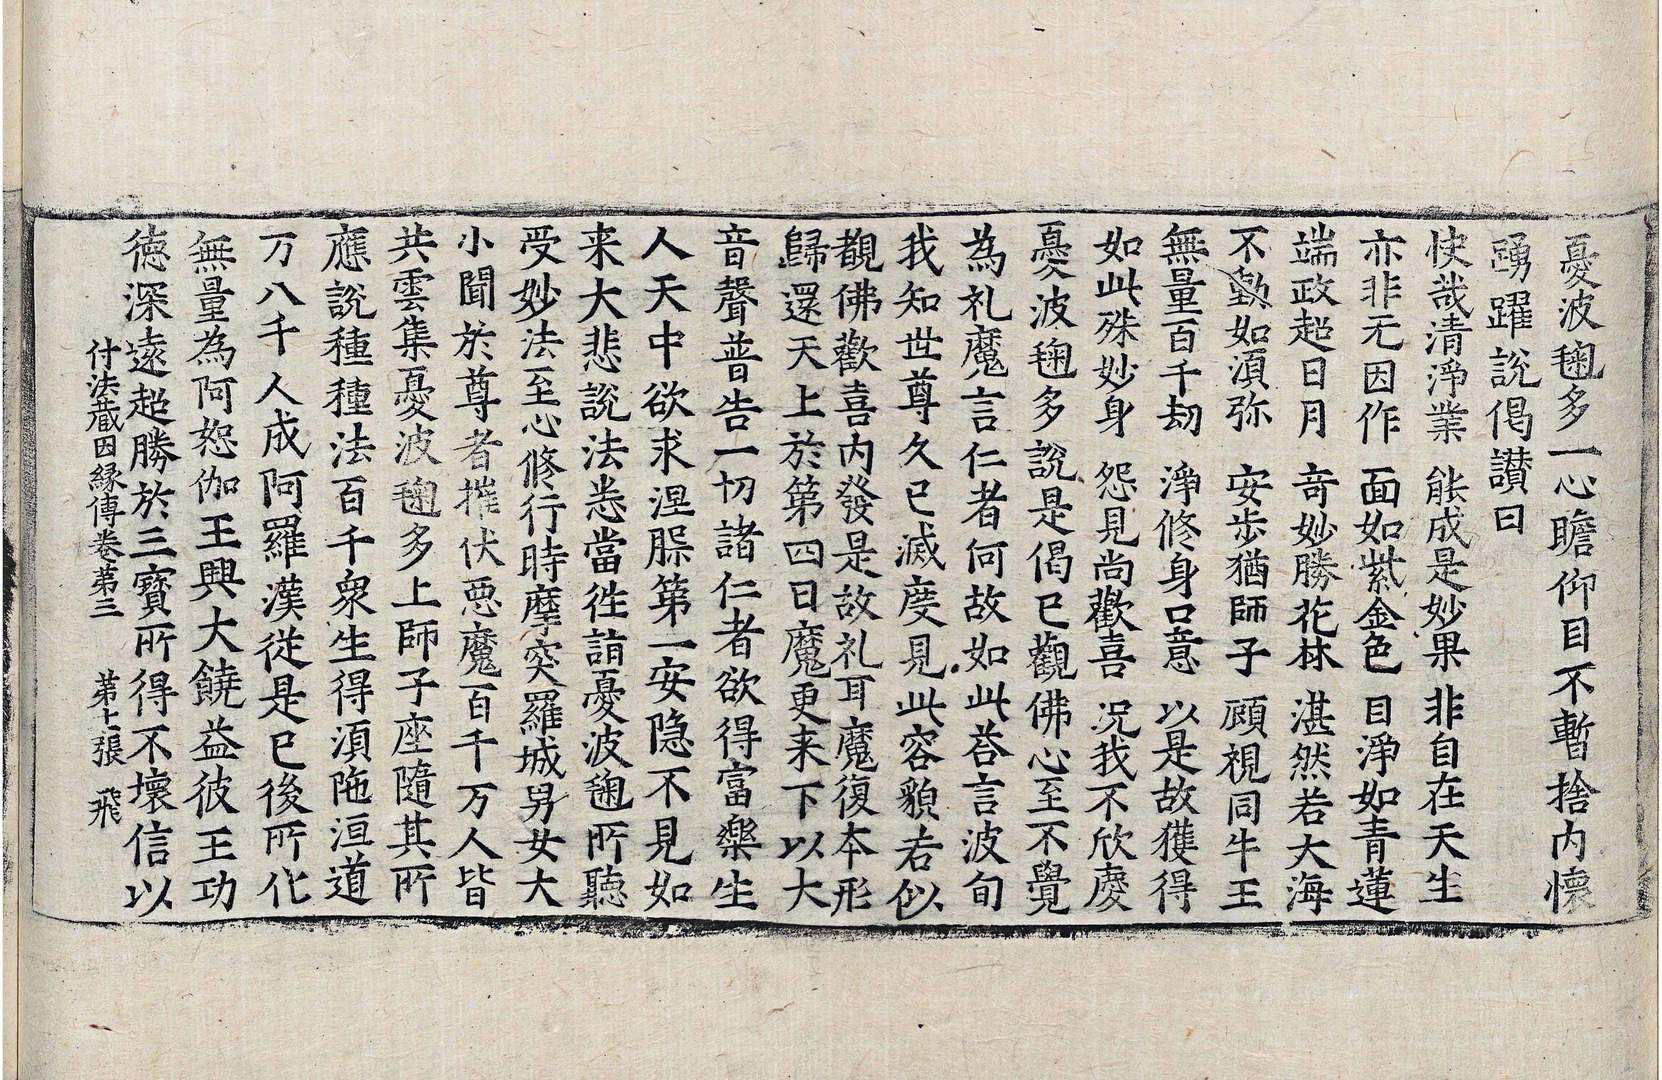 憂波毱多一心瞻仰目不暫捨內懷
踴躍說偈讃曰
快哉清淨業 能成是妙果 非自在天生
亦非无因作 面如紫金色 目淨如青蓮
端政超日月 奇妙勝花林 湛然若大海
不動如湏弥 安歩猶師子 顧視同牛王
無量百千劫 淨修身口意 以是故獲得
如此殊妙身 怨見尚歡喜 况我不欣慶
憂波毱多說是偈已觀佛心至不覺
為礼魔言仁者何故如此荅言波旬
我知世尊久已滅度見此容貌若似
覩佛歡喜內發是故礼耳魔復本形
歸還天上於第四日魔更来下以大
音聲普告一切諸仁者欲得富樂生
人天中欲求涅槃第一安隐不見如
来大悲說法悉當徃詣憂波毱多所聽
受妙法至心修行時摩突羅城男女大
小聞於尊者摧伏惡魔百千万人皆
共雲集憂波毱多上師子座隨其所
應說種種法百千衆生得湏陁洹道
万八千人成阿羅漢從是已後所化
無量為阿恕伽王興大饒益彼王功
德深遠超勝於三寳所得不壞信以
付法蔵因緣傳卷第三 第七張 飛